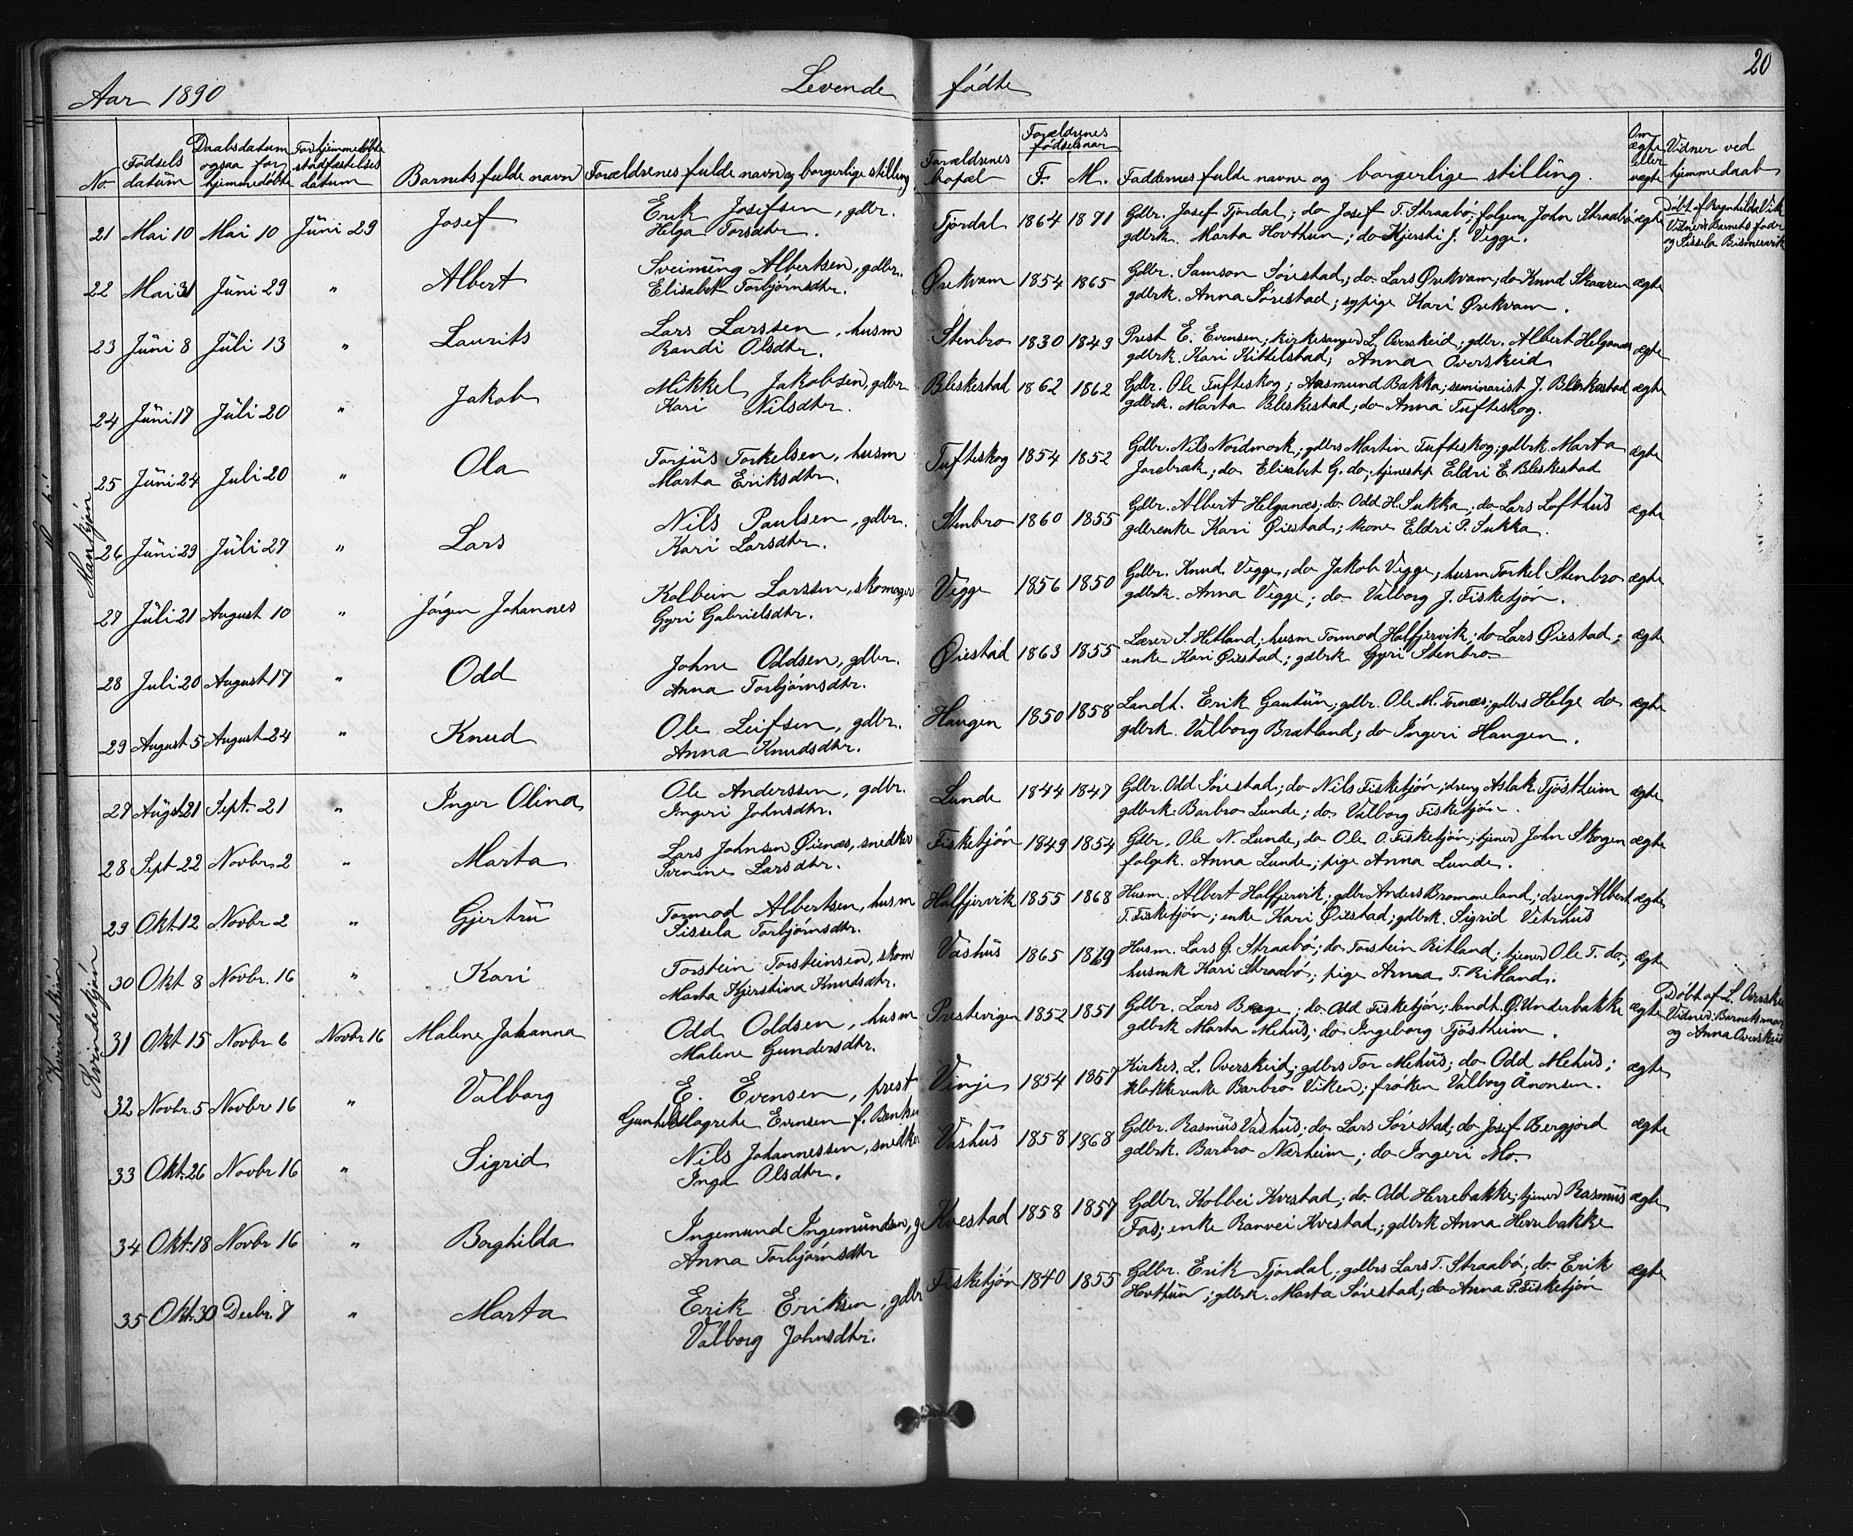 20
Aar 1890 Levende fødte
No Fødsels datum Daabsdatum ogsaa for hjemmedøbte For hjemmedøbte stadfæstelses datum Barnets fulde navn Forældrenes fulde navn og borgerlige stilling Forældrenes bopæl Forældrenes fødselsaar F. M. Faddernes fulde navne og borgerlige stilling. Om ægte eller uægte Vidner ved hjemmedaab
Mankjøn
21 Mai 10 Mai 10 Juni 29 Josef Erik Josefsen, gdbr. Tjordal 1864 1871 Gdbr. Josef Tjordal; do Josef T. Straabø; folgem John Straabø ægte Døbt af Ragnhilda Vik
Helga Torsdtr. gdbrk. Marta Hovthun; do Kjersti J. Vegge. Vidner: Barnets fader
og Sissela Bismervik
22 Mai 31 Juni 29 " Albert Sveinung Albertsen, gdbr. Ørekvam 1854 1865 Gdbr. Samson Sørestad; do Lars Ørekvam; do Knud Skaaren ægte
Elisabet Torbjørnsdtr. gdbrk. Anna Sørestad; sypige Kari Ørekvam.
23 Juni 8 Juli 13 " Laurits Lars Larssen, husm Stenbro 1830 1849 Prest E. Evensen; kirkesanger L. Overskeid; gdbr. Albert Helganes ægte
Randi Olsdtr. gdbrk. Kari Kittelstad; Anna Overskeid
24 Juni 17 Juli 20 " Jakob Mikkel Jakobsen, gdbr Bleskestad 1862 1862 Gdbr. Ole Tufteskog; Aasmund Bakka; seminarist J. Bleskestad ægte
Kari Nilsdtr. gdbrk. Marta Bleskestad; do Anna Tufteskog.
25 Juni 24 Juli 20 " Ola Torjus Torkelsen, husm Tufteskog 1854 1852 Gdbr. Nils Nordmork; gdbrs Martin Tufteskog; gdbrk Marta ægte
Marta Eriksdtr. Jorebræk; do Elisabet G. do; tjenestep Eldri E. Bleskestad
26 Juni 29 Juli 27 " Lars Nils Paulsen, gdbr. Stenbro 1860 1855 Gdbr. Albert Helganes; do Odd H. Sukka; do Lars Lofthus ægte
Kari Larsdtr. gdbrenke Kari Øiestad; kone Eldri P. Sukka.
27 Juli 21 August 10 " Jørgen Johannes Kolbein Larssen, skomager Vegge 1856 1850 Gdbr. Knud Vegge; do Jakob Vegge; husm Torkel Stenbro ægte
Gyri Gabrielsdtr. gdbrk. Anna Vegge; do Valborg J. Fisketjøn.
28 Juli 20 August 17 " Odd Johne Oddsen, gdbr. Øiestad 1863 1855 Lærer S. Hetland; husm Tormod Halfjervik; do Lars Øiestad; ægte
Anna Torbjørnsdtr. enke Kari Øiestad; gdbrk Gyri Stenbro
29 August 5 August 24 " Knud Ole Leifsen, gdbr. Haugen 1850 1858 Landh. Erik Gautun; gdbr. Ole M. Tornæs; gdbrs Helge do ægte
Anna Knudsdtr. gdbrk. Valborg Bratland; do Ingeri Haugen.
Kvindekjøn
Kvindekjøn
27 August 21 Sept. 21 " Inger Olina Ole Anderssen, gdbr. Lunde 1844 1847 Gdbr. Odd Sørestad; do Nils Fisketjøn; dreng Aslak Tjøstheim ægte
Ingeri Johnsdtr. gdbrk Barbro Lunde; do Valborg Fisketjøn.
28 Sept 22 Novbr. 2 " Marta Lars Johnsen Øienæs, snedker Fisketjøn 1849 1854 Gdbr. Ole N. Lunde; do Ole O. Fisketjøn; tjener John Skogen ægte
Larsdtr. folgek. Anna Lunde; pige Anna Lunde.
29 Okt. 12 Novbr 2 " Gjertru Tormod Albertsen, husm Halfjervik 1855 1868 Husm. Albert Halfjervik; gdbr Anders Brommeland; dreng Albert ægte
Sissela Torbjørnsdtr. T. Fisketjøn; enke Kari Øiestad; gdbrk. Sigrid Vetrhus
30 Okt 8 Novbr. 16 " Kari Torstein Torsteinsen, skom Vashus 1865 1869 Husm. Lars G. Straabø; do Torstein Ritland; tjener Ole T. do; ægte
Marta Kjerstina Knudsdtr. husmk Kari Straabø; pige Anna T. Ritland.
31 Okt 15 Novbr 6 Novbr 16 Malene Johanna Odd Oddsen, husm Prestevigen 1852 1851 Gdbr. Lars Berge; do Odd Fisketjøn; landh. Ø. Underbakke ægte Døbt af L. Overske
Malene Gundersdtr. gdbrk Marta Mehus; do Ingeborg Tjøstheim. Vidner: Barnets mor
og Anna Overskeid
32 Novbr. 5 Novbr 16 " Valborg E. Evensen, prest Vinje 1854 1857 Kirkes. L. Overskeid; gdbrs Tor Mehus; do Odd Mehus; ægte
Evensen f. klokkerenke Barbro Viken; frøken Valborg Ånonsen.
33 Okt. 26 Novbr 16 " Sigrid Nils Johannessen, snedke Vashus 1858 1868 Gdbr. Rasmus Vashus; do Lars Sørestad; do Josef Bergjord ægte
Inga Olsdtr. gdbrk. Barbro Nærheim; do Ingeri Mo.
34 Okt. 18 Novbr 16 " Borghilda Ingemund Ingemundsen, g Kvestad 1858 1857 Gdbr. Kolbei Kvestad; do Odd Herrebakke; tjener Rasmus ægte
Anna Torbjørnsdtr Fos; enke Ranvei Kvestad; gdbrk Anna Herrebakke
35 Okt. 30 Decbr. 7 " Marta Erik Eriksen, gdbr Fisketjøn 1840 1855 Gdbr. Erik Tjordal; gdbrs Lars T. Straabø; do Erik ægte
Valborg Johnsdtr. Hovthun; gdbrk. Marta Sørestad; do Anna P. Fisketjøn